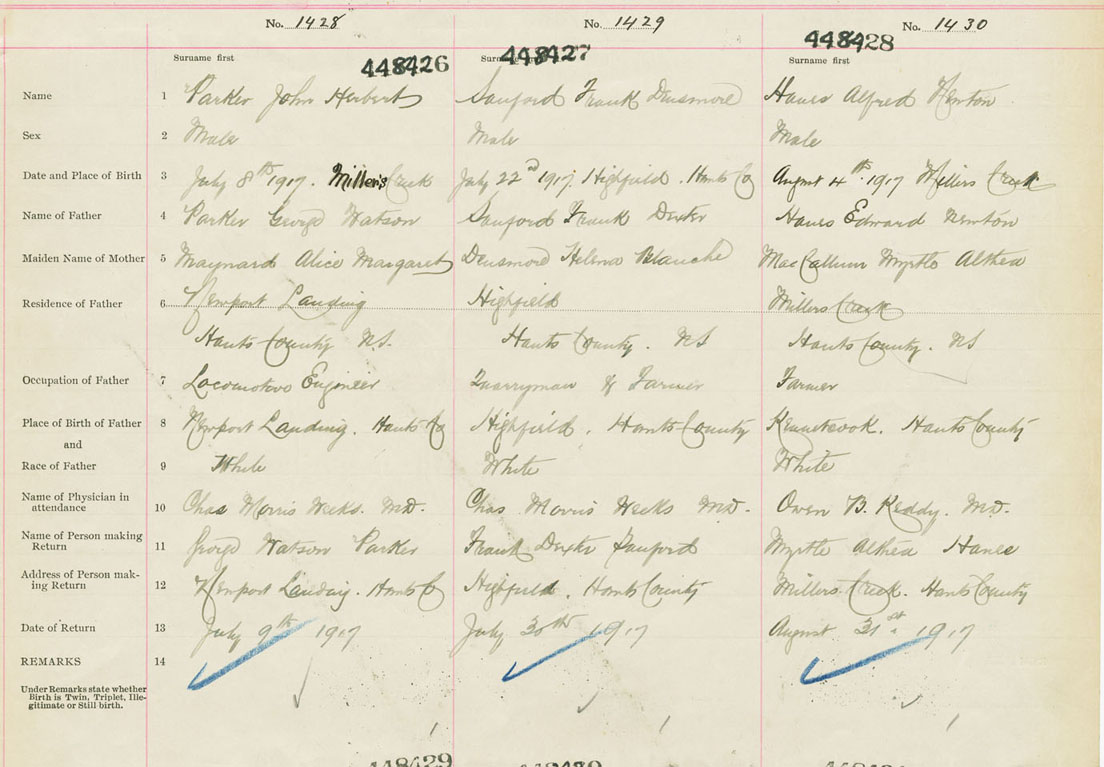 No. 1428 No. 1429 No. 1430
448426 448427 448428
Surname first Surname first Surname first
Name 1 Parker John Herbert Sanford Frank Densmore Hanes Alfred Newton
Sex 2 Male Male Male
Date and Place of Birth 3 July 8th 1917. Miller's Creek July 22nd 1917. Highfield. Hants Co August 4th 1917 Millers Creek
Name of Father 4 Parker George Watson Sanford Frank Dexter Hanes Edward Newton
Maiden Name of Mother 5 Maynard Alice Margaret Densmore Helena Blanche MacCallum Myrtle Althea
Residence of Father 6 Newport Landing Highfield Millers Creek
Hants County N.S. Hants County. NS Hants County. NS
Occupation of Father 7 Locomotive Engineer Quarryman & Farmer Farmer
Place of Birth of Father 8 Newport Landing. Hants Co Highfield. Hants County Kennetcook. Hants County
and
Race of Father 9 White White White
Name of Physician in
attendance 10 Chas Morris Weeks. MD. Chas Morris Weeks MD. Owen B. Keddy. MD.
Name of Person making
Return 11 George Watson Parker Frank Dexter Sanford Myrtle Althea Hanes
Address of Person mak-
ing Return 12 Newport Landing. Hants Co Highfield. Hants County Millers Creek. Hants County
Date of Return 13 July 9th 1917 July 30th 1917 August 31st. 1917
REMARKS 14
Under Remarks state whether
Birth is Twin, Triplet, Ille-
gitimate or Still birth.
1 1 1
448429